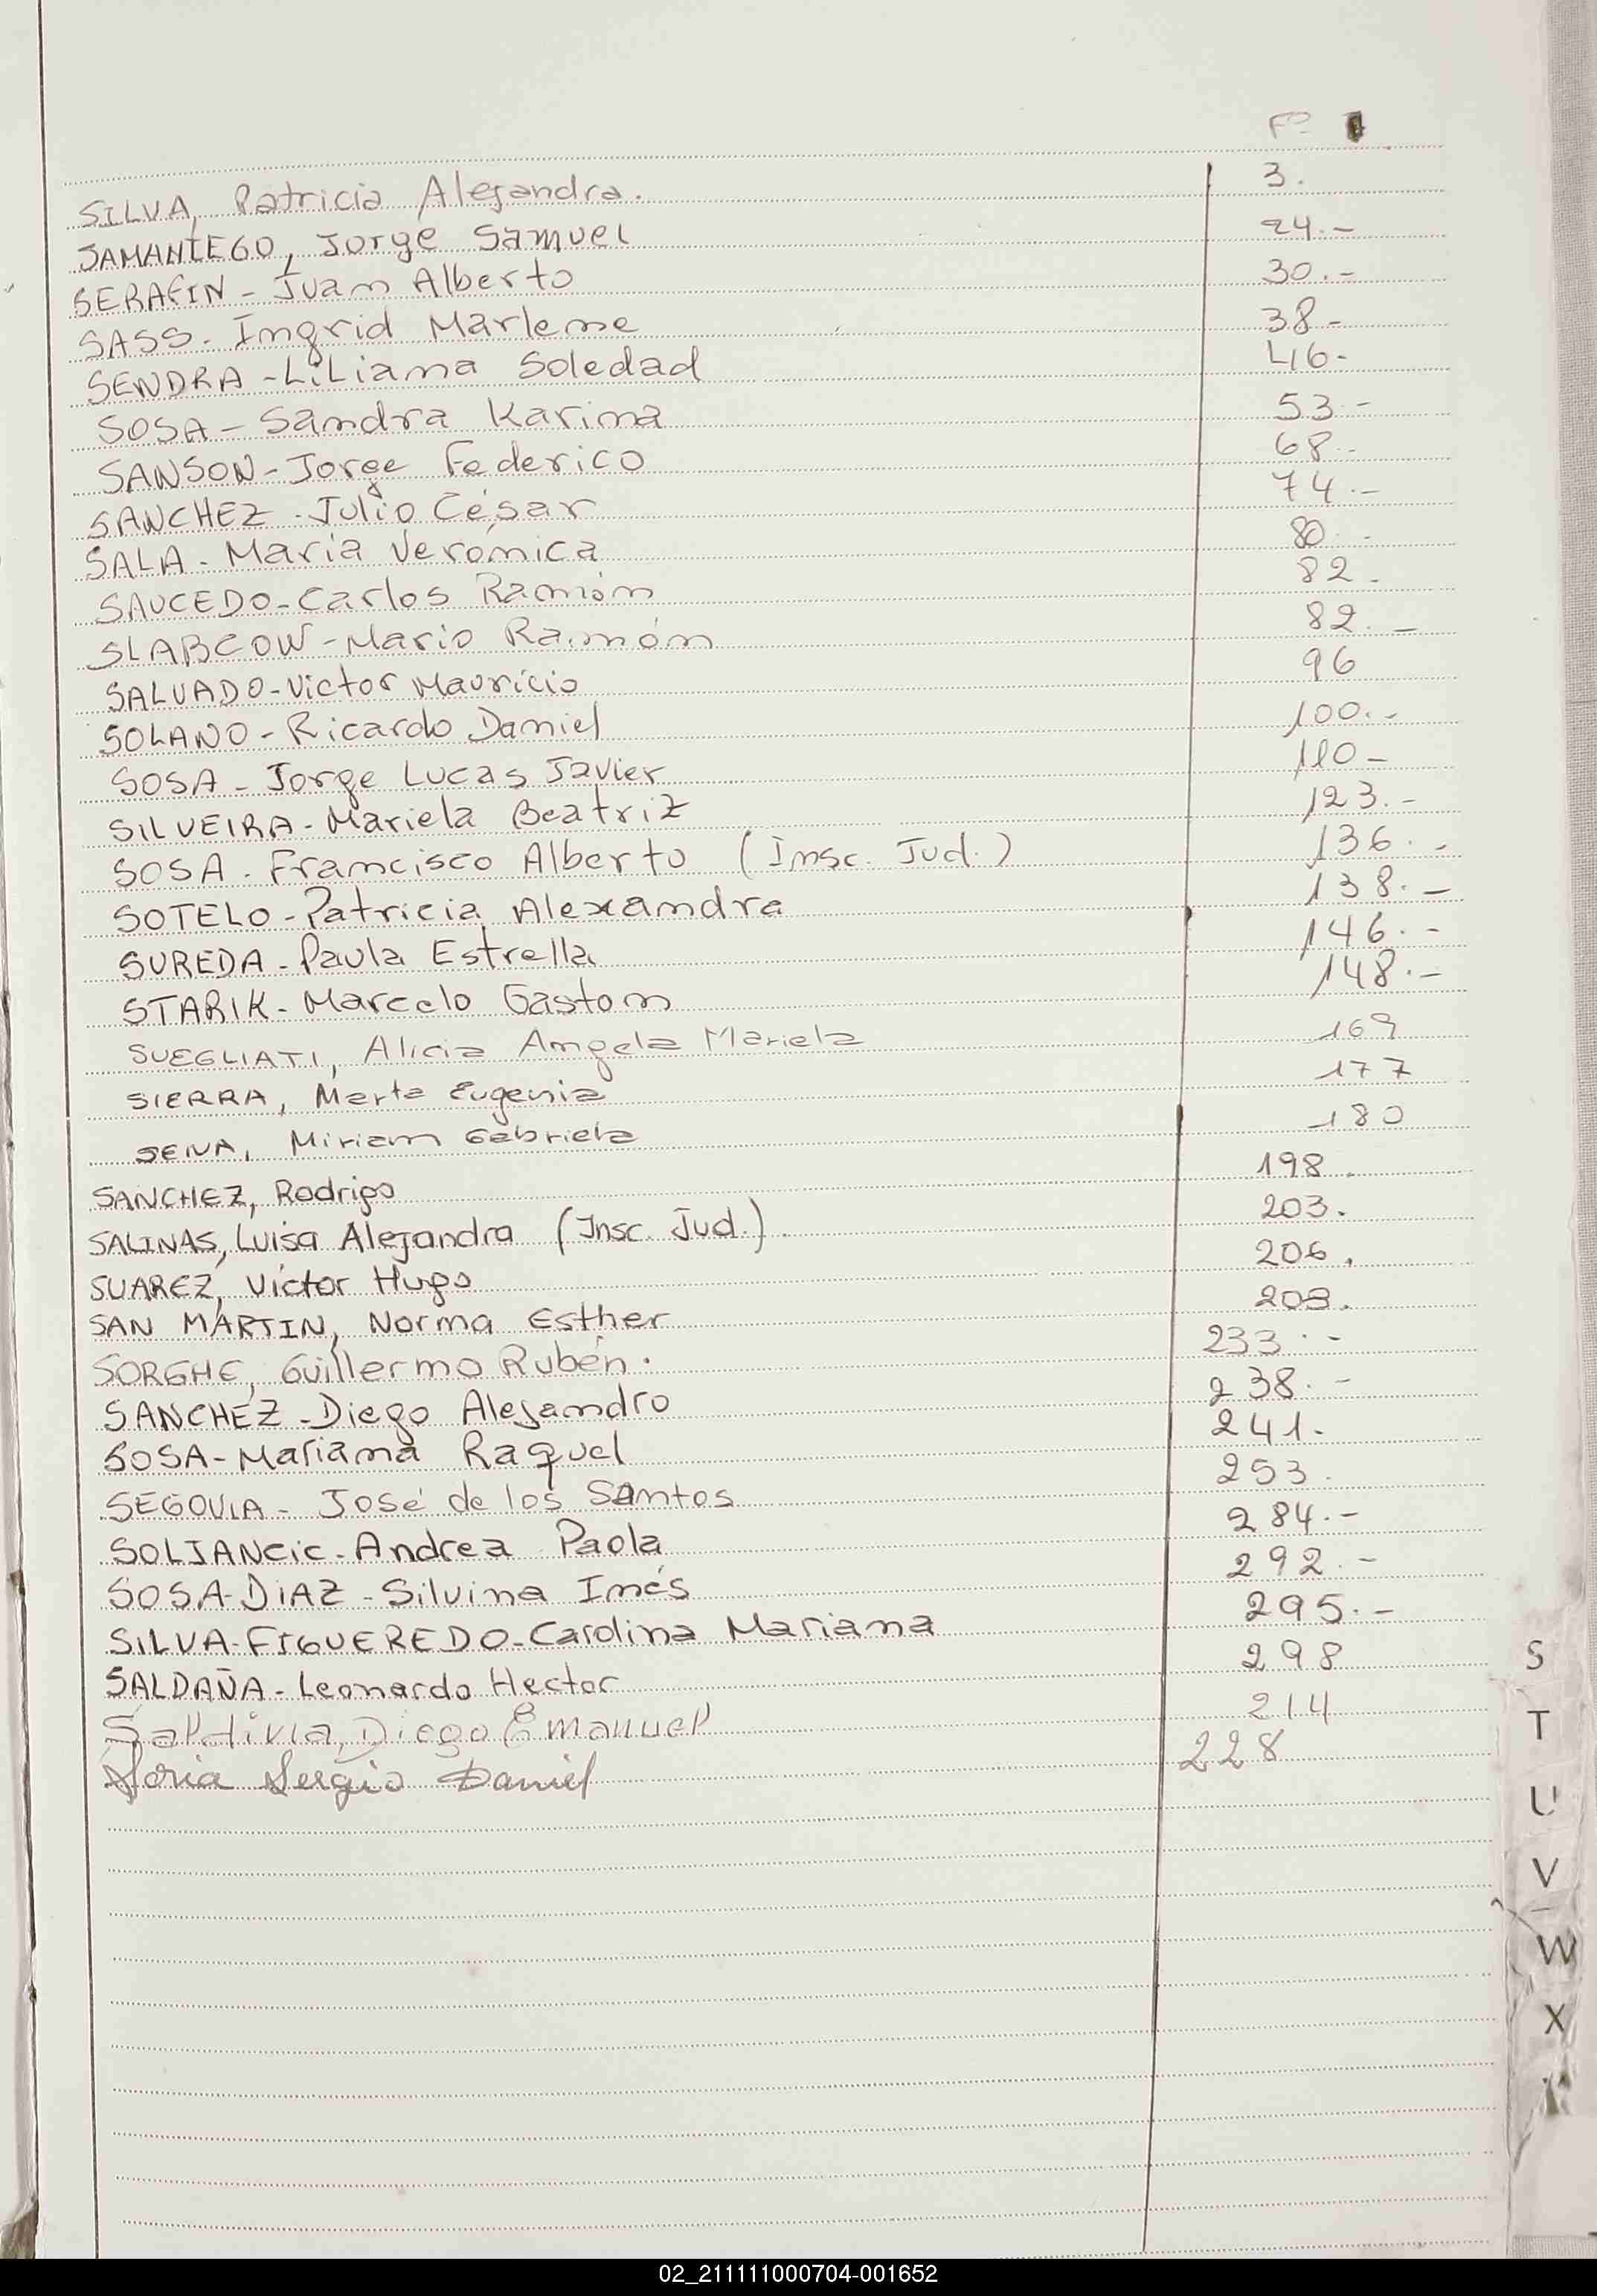 Fº
SILVA, Patricia Alejandra. 3.
SAMANIEGO, Jorge Samuel 24.-
SERAFIN - Juan Alberto 30.-
SASS. Ingrid Marlene 38-
SENDRA - Liliana Soledad 46-
SOSA - Sandra Karina 53-
SANSON - Jorge Federico 68.-
SANCHEZ - Julio César 74.-
SALA - María Verónica 80.-
SAUCEDO - Carlos Ramón 82-
SLABCOW - Mario Ramón 82.-
SALVADO - Victor Mauricio 96
SOLANO - Ricardo Daniel 100.-
SOSA - Jorge Lucas Javier 110-
SILVEIRA - Mariela Beatriz 123.-
SOSA - Francisco Alberto (Insc. Jud.) 136.-
SOTELO - Patricia Alexandra 138.-
SUREDA - Paula Estrella 146.-
STARIK - Marcelo Gaston 148.-
SUEGLIATI, Alicia Angela Mariela 169
SIERRA, Marta Eugenia 177
SENA, Miriam Gabriela 180
SANCHEZ, Rodrigo 198.
SALINAS, Luisa Alejandra (Insc. Jud.). 203.
SUAREZ, Víctor Hugo 206.
SAN MARTIN, Norma Esther
SORGHE, Guillermo Rubén. 233.-
SANCHEZ - Diego Alejandro 238.-
SOSA - Mariana Raquel 241.
SEGOVIA - José de los Santos 253.
SOLJANCIC - Andrea Paola 284.-
SOSA-DIAZ - Silvina Inés 292.-
SILVA-FIGUEREDO - Carolina Mariana 295.-
SALDAÑA - Leonardo Hector 298
Saldivia, Diego Emanuel 214
Soria Sergio Daniel 228
S
T
U
V
W
X
02_211111000704-001652